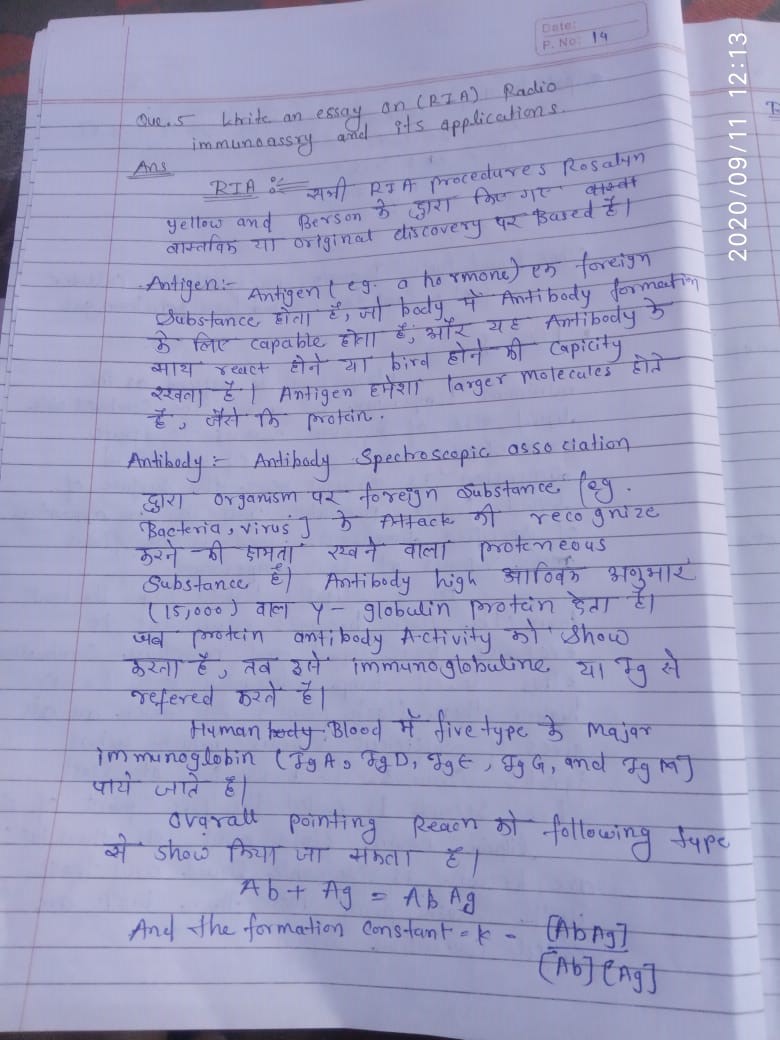 Date:
P. No: 14
Que. 5 Write an essay on (RIA) Radio
immunoassry and its applications.
Ans
RIA :- सभी RIA Procedures Rosalyn
yellow and Berson के द्वारा किए गए
वास्तविक या original discovery पर Based है।
Antigen:- Antigen (eg. a hormone) एक foreign
Substance होता है, जो body में Antibody formation
के लिए capable होता है, और यह Antibody के
साथ react होने या bird होने की Capicity
रखता है। Antigen हमेशा larger molecules होते
है, जैसे कि protein.
Antibody:- Antibody Spectroscopic association
द्वारा organism पर foreign Substance [eg.
Bacteria, virus] के Attack को recognize
करने की क्षमता रखने वाला proteneous
Substance है। Antibody high आण्विक अनुभार
(15,000) वाला γ- globulin protein देता है।
जब protein antibody Activity को Show
करता है, तब इसे immunoglobuline या Ig से
refered करते है।
Human body Blood में five type के Majar
immunoglobin (IgA, IgD, IgE, IgG, and IgM]
पाये जाते है।
Ovarall pointing Reacn को following type
से show किया जा सकता है।
Ab + Ag = AbAg
And the formation Constant = k - [AbAg]
[Ab][Ag]
2020/09/11 12:13